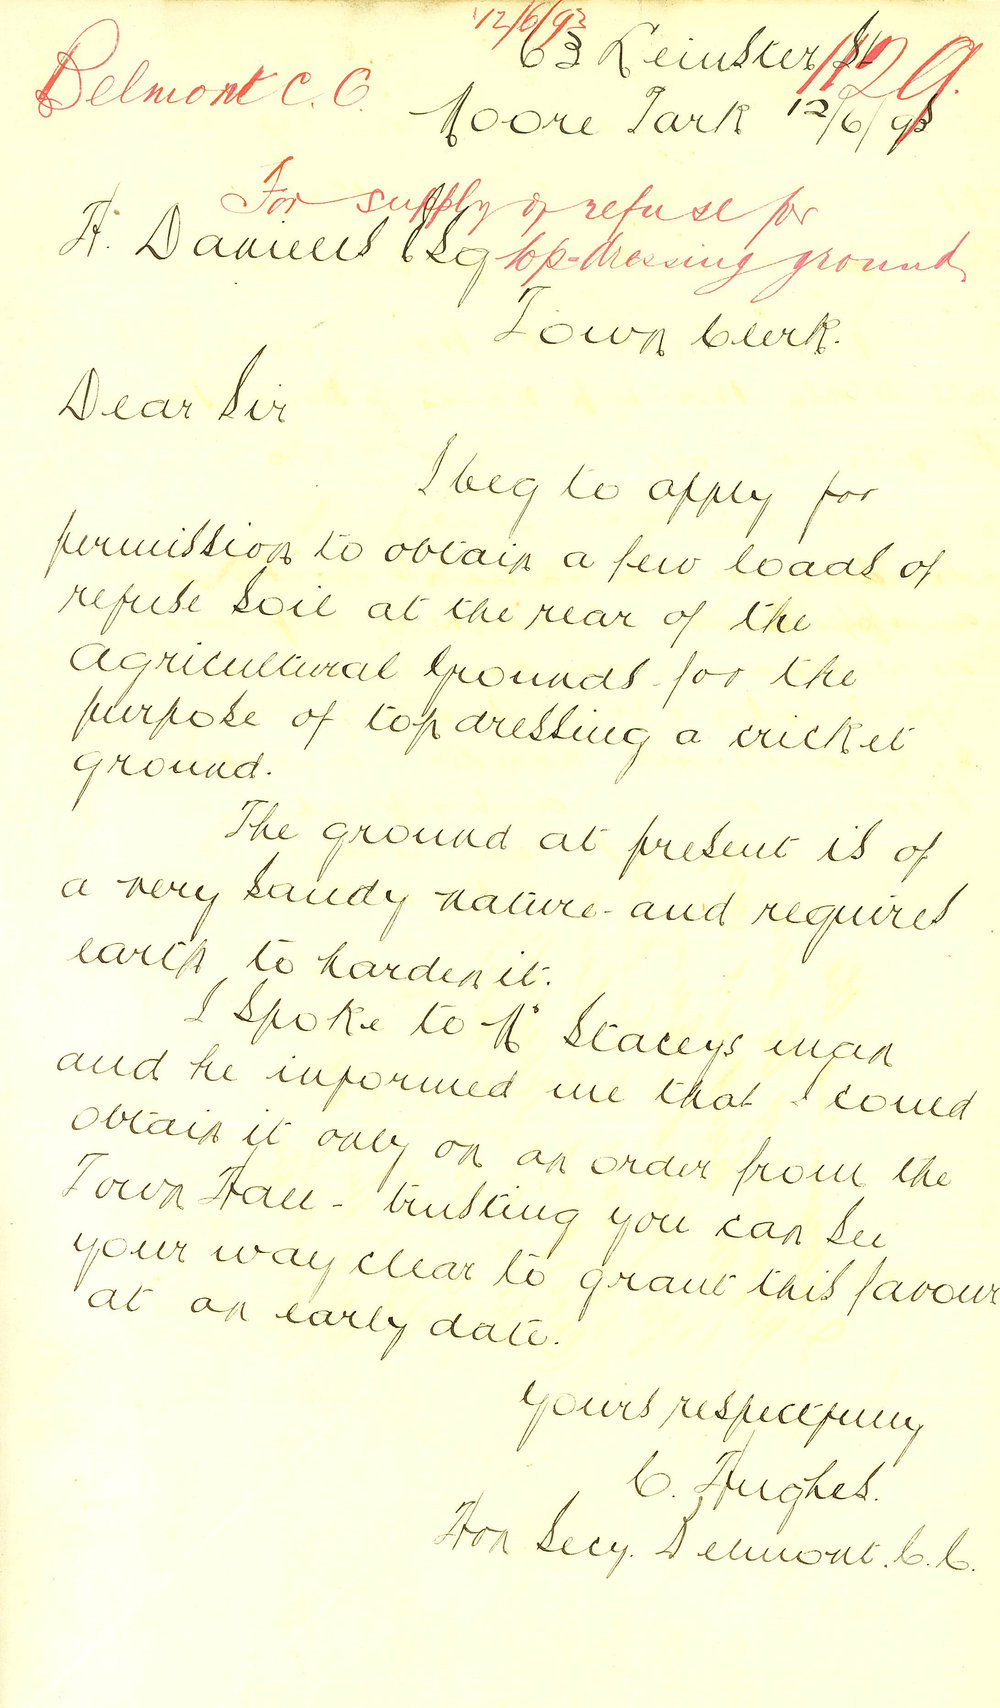 12/6/93
63 Leinster St
1129.
Belmont C. C.
Moore Park 12/6/93
For supply of refuse for
H. Daniels Esq
top-dressing ground
Town Clerk.
Dear Sir
I beg to apply for
permission to obtain a few loads of
refuse soil at the rear of the
Agricultural Grounds for the
purpose of top dressing a cricket
ground.
The ground at present is of
a very sandy nature - and requires
earth to harden it.
I spoke to Mr Staceys man
and he informed me that I could
obtain it only on an order from the
Town Hall - trusting you can see
your way clear to grant this favour
at an early date.
Yours respectfully
C. Hughes.
Hon Secy. Belmont. C. C.